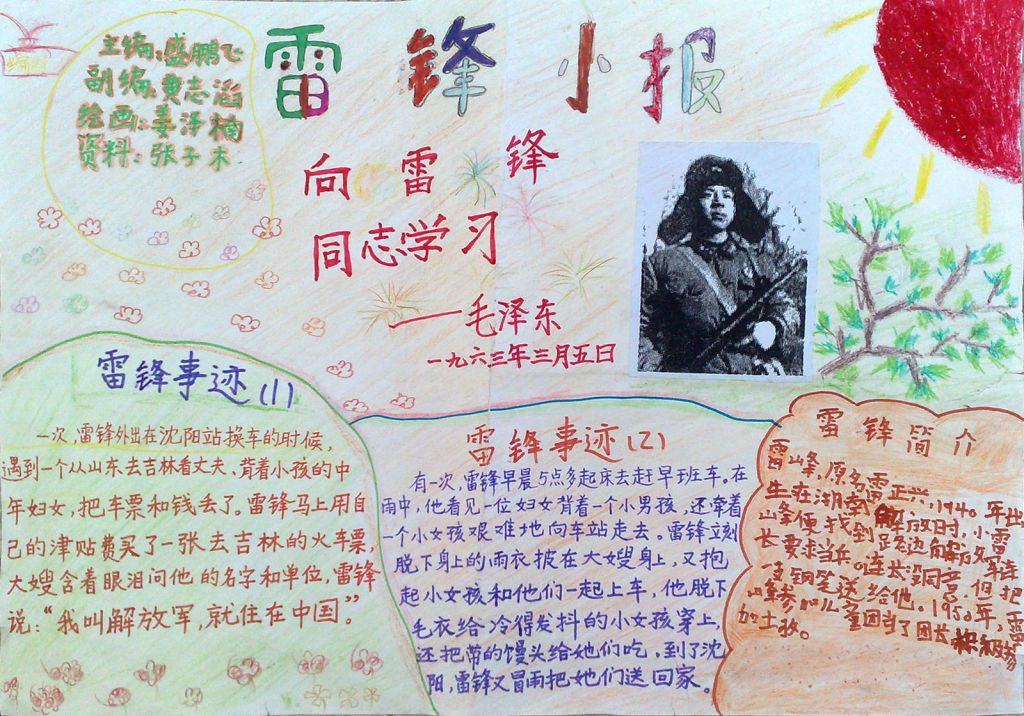 主编:盛鹏飞
副编:黄志滔
绘画:姜泽楠
资料:张子木
雷锋小报
向雷锋
同志学习
——毛泽东
一九六三年三月五日
雷锋事迹(1)
一次,雷锋外出在沈阳站换车的时候,
遇到一个从山东去吉林看丈夫、背着小孩的中
年妇女,把车票和钱丢了。雷锋马上用自
己的津贴费买了一张去吉林的火车票,
大嫂含着眼泪问他的名字和单位,雷锋
说:“我叫解放军,就住在中国”。
雷锋事迹(2)
有一次,雷锋早晨5点多起床去赶早班车。在
雨中,他看见一位妇女背着一个小男孩,还牵着
一个小女孩艰难地向车站走去。雷锋立刻
脱下身上的雨衣披在大嫂身上,又抱
起小女孩和他们一起上车,他脱下
毛衣给冷得发抖的小女孩穿上,
还把带的馒头给她们吃,到了沈
阳,雷锋又冒雨把她们送回家。
雷锋简介
雷峰,原名雷正兴,1940年出
生在湖南解放时,小雷
峰便找到路边的解放军连
长要求当兵。连长没同意,但把
一支钢笔送给他。1950年,雷
峰参加儿童团当了团长,积极参
加土改。